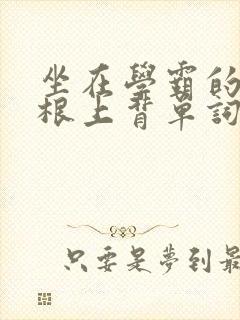 坐在學霸的
根上背單詞
只要是夢到最